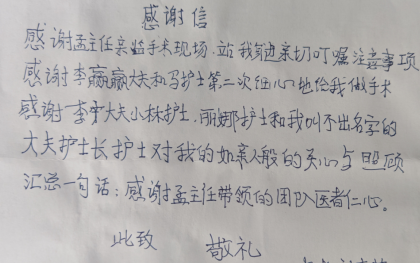 感谢信
感谢孟主任亲临手术现场,站我身边亲切叮嘱注意事项
感谢李赢赢大夫和马护士第二次细心地给我做手术
感谢李宇大夫小林护士、丽娜护士和我叫不出名字的
大夫护士长护士对我的如亲人般的关心与照顾
汇总一句话:感谢孟主任带领的团队医者仁心。
此致 敬礼